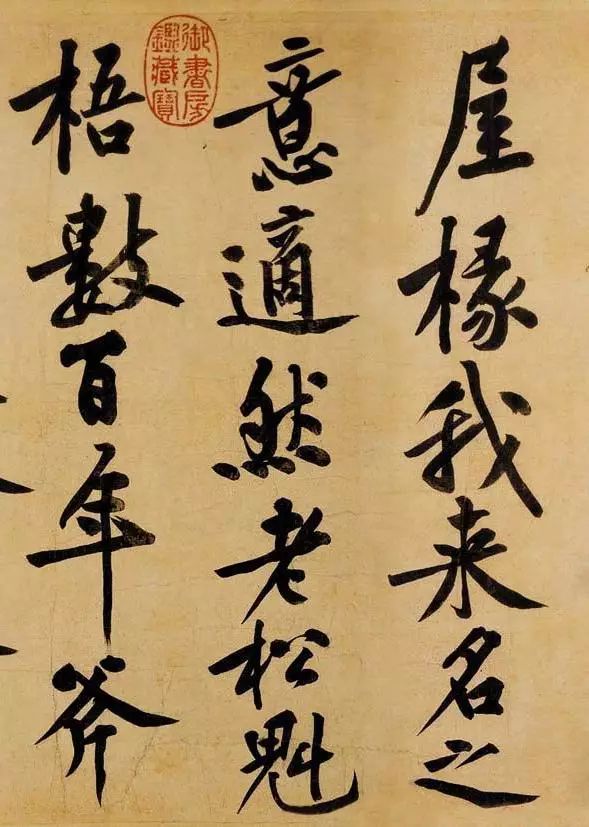 屋椽我来名之
意適然老松魁
御書房
鑑藏寶
梧數百年斧